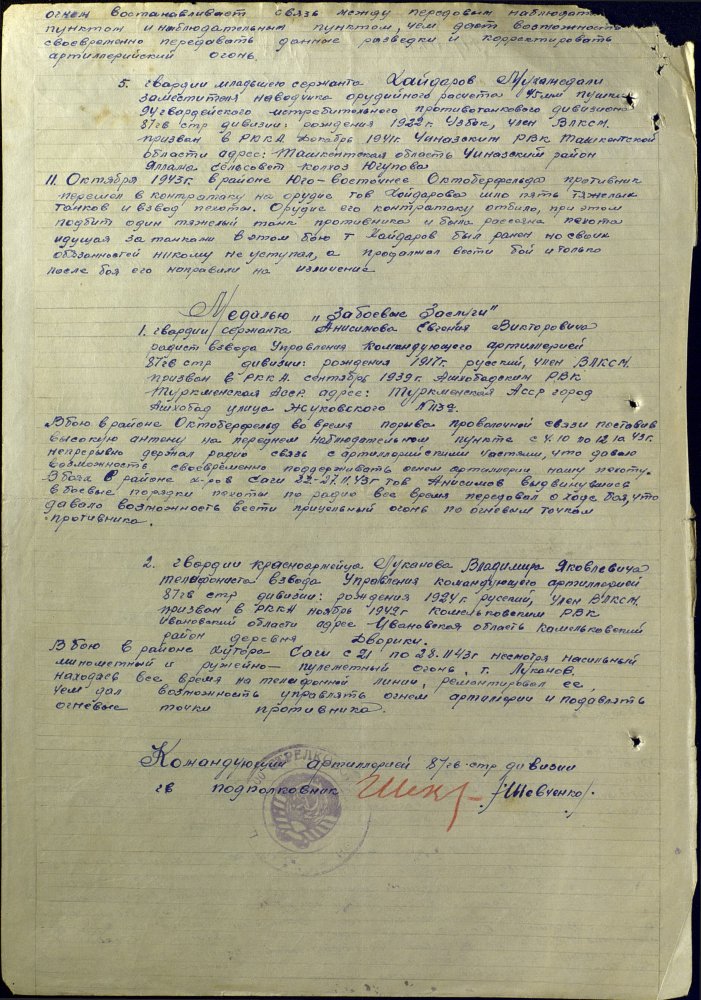 огнем востанавливает связь между передовым наблюдат
пунктом и наблюдательным пунктом, чем дает возможность
своевременно передавать данные разведки и корректировать
артиллерийский огонь.
5. гвардии младшего сержанта Хайдаров Мухамедали
заместителя наводчика орудийного расчета 45 мм пушки
94 гвардейского истребительного противотанкового дивизиона
87 гв стр дивизии: рождения 1922 г. Узбек, член ВЛКСМ.
призван в РККА Декабрь 1941 г. Чиназским РВК Ташкентской
области адрес: Ташкентская область Чиназский район
Яллама сельсовет колхоз Югупова
11. Октября 1943 г. в районе Юго-Восточнее Октоберфельда противник
перешел в контратаку на орудие тов Хайдарова шло пять тяжелых
танков и взвод пехоты. Орудие его контратаку отбило, при этом
подбит один тяжелый танк противника и была рассеяна пехота
идущая за танками в этом бою т Хайдаров был ранен но своих
обязанностей никому не уступал, а продолжал вести бой и только
после боя его направили на изличение
Медалью „За боевые Заслуги"
1. гвардии сержанта Анисимова Евгения Викторовича
радист взвода Управления командующего артиллерией
87 гв стр дивизии: рождения 1917 г. русский, член ВЛКСМ.
призван в РККА. сентябрь 1939 г. Ашхобадским РВК
Туркменская Асср. адрес: Туркменская Асср город
Ашхобад улица Жуковского №
В бою в районе Октоберфельд во время порыва проволочной связи поставив
высокую антену на переднем наблюдательном пункте с 4.10 по 12.10 43 г.
непрерывно держал радио связь с артиллерийскими частями, что давало
возможность своевременно поддерживать огнем артиллерии нашу пехоту.
В боях в районе х-ров Саги 22-27.11.43 г тов Анисимов выдвинувшись
в боевые порядки пехоты по радио все время передавал о ходе боя, что
давало возможность вести прицельный огонь по огневым точкам
противника.
2. гвардии красноармейца Луканова Владимира Яковлевича
телефониста взвода Управления командующего артиллерией
87 гв стр дивизии: рождения 1924 г. русский, член ВЛКСМ.
призван в РККА ноябрь 1942 г Комельковским РВК
Ивановской области адрес Ивановская область Камельковский
район деревня Дворики.
В бою в районе хутора Саги с 21 по 28.11 43 г несмотря на сильный
минометный и ружейно-пулеметный огонь, т. Луканов,
находясь все время на телефонной линии, ремонтировал ее,
чем дал возможность управлять огнем артиллерии и подавлять
огневые точки противника.
Командующий артиллерией 87 гв. стр дивизии
гв подполковник /Шевченко/.